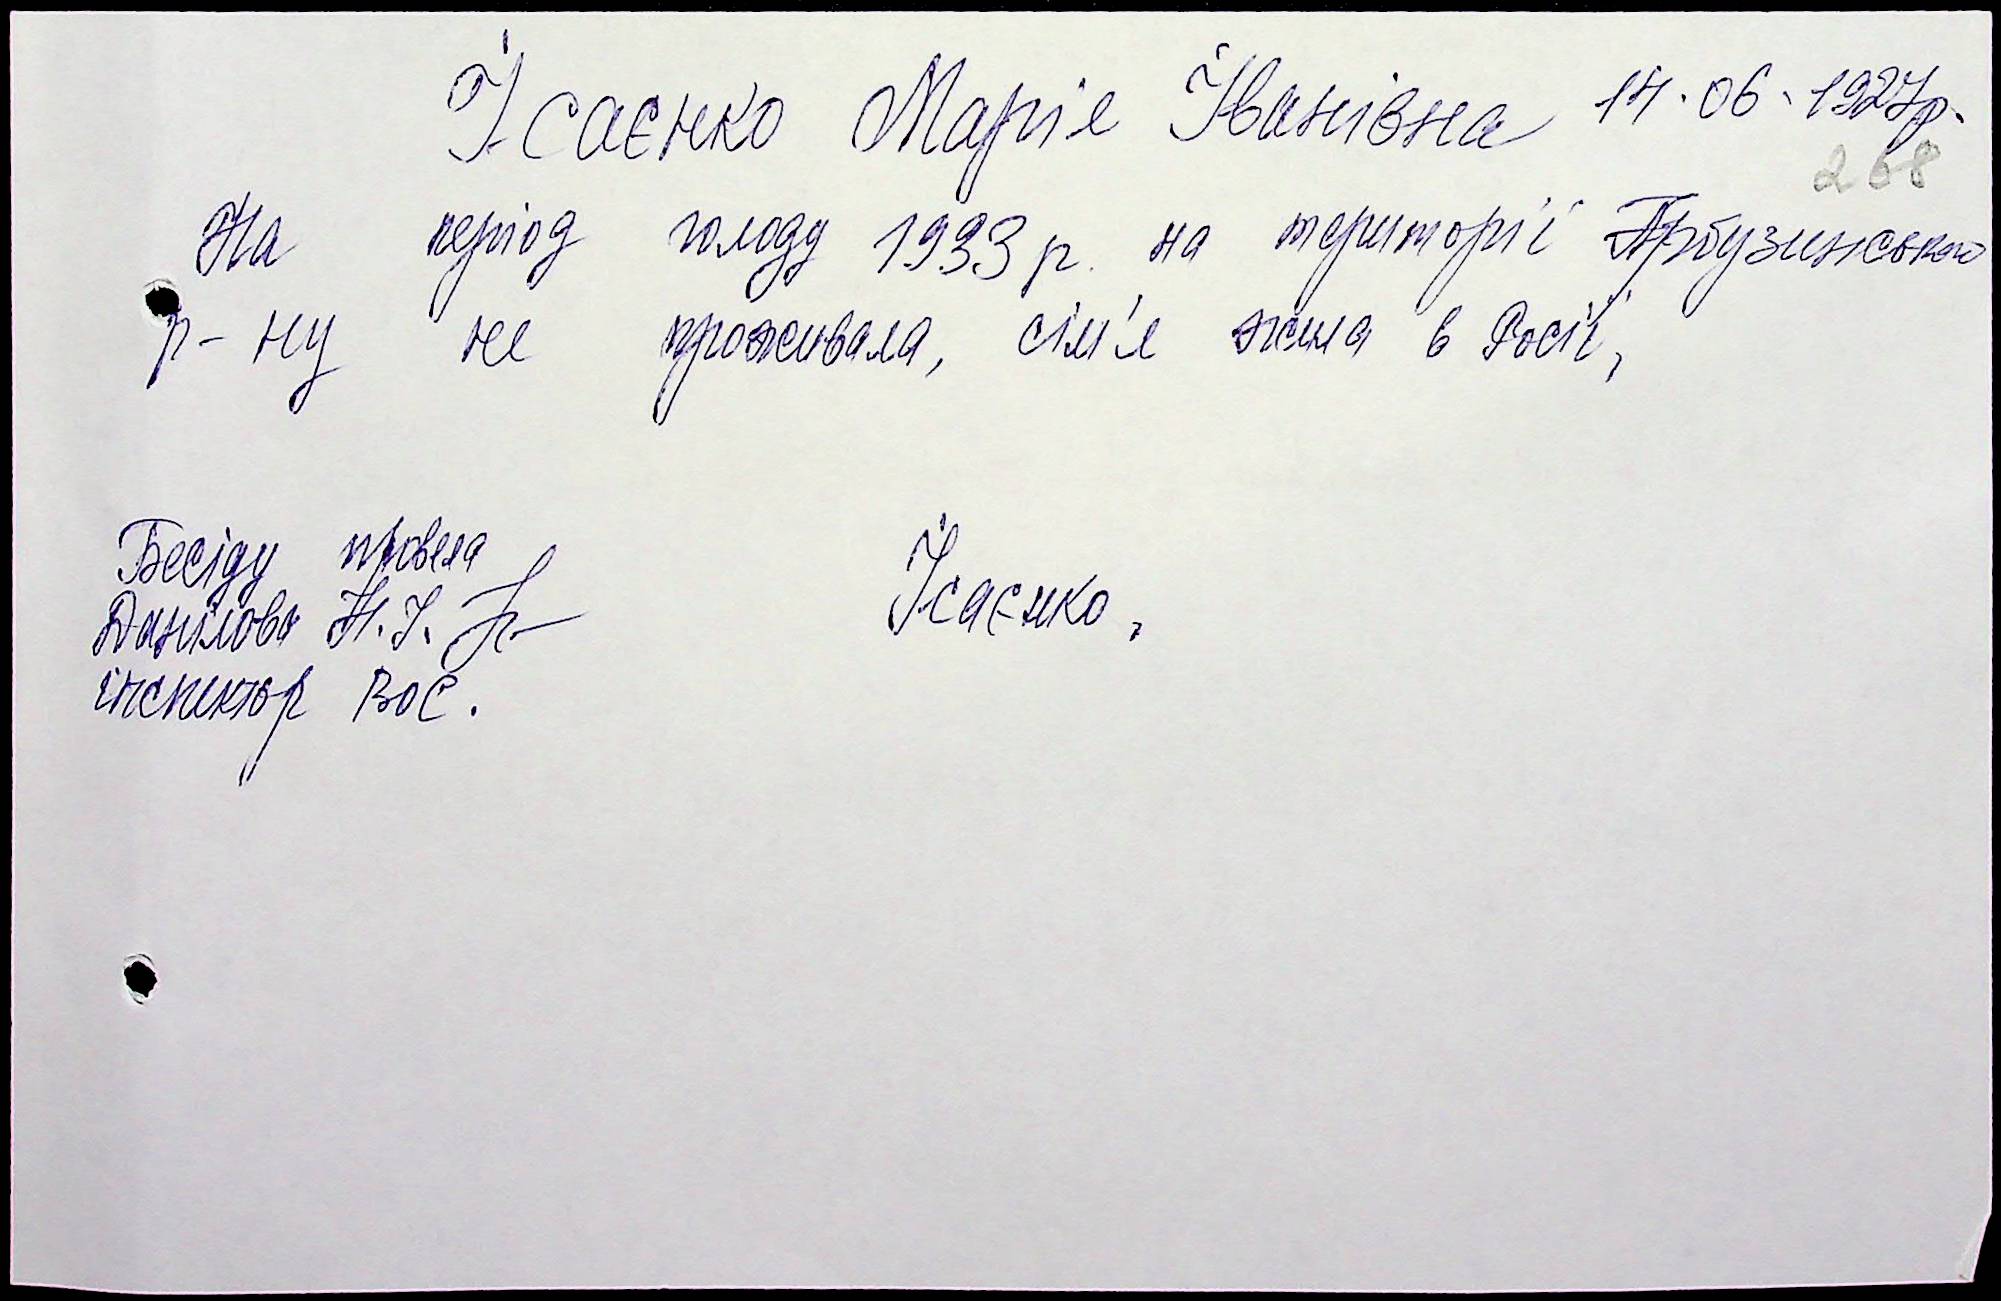 Ісаєнко Марія Іванівна 14.06.1927р.
268
На період голоду 1933 р. на території Арбузинського
р-ну не проживала, сім'я жила в Росії,
Бесіду провела
Данілова Н.І.
інспектор ВОС.
Ісаєнко,